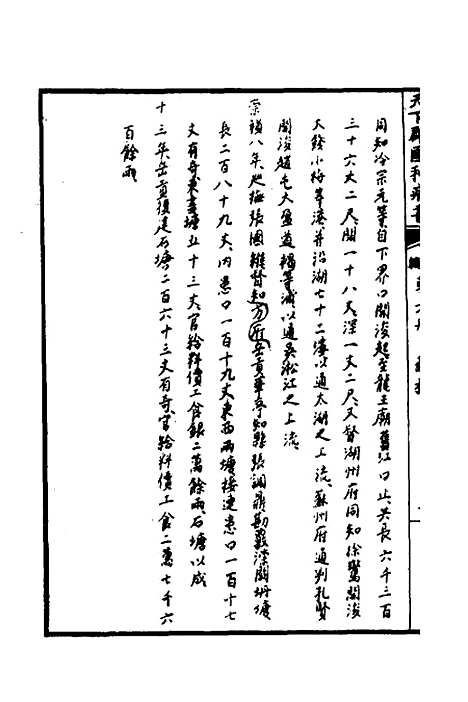 天下郡國利病書
同知冷宗元等自下界口開浚起至龍王廟舊江口止共長六千三百
三十六丈二尺開一十八丈深一丈二尺又督湖州府同知徐鸞開浚
大錢小梅等港并沿湖七十二漊以通太湖之上流蘇州府通判孔賢
開浚趙屯大盈道褐等浦以通吳淞江之上流
崇禎八年巡撫張國維督知府方岳貢華亭知縣張調鼎勘覈漴闕坍塘
長二百八十九丈內患口一百十九丈東西兩塘接連患口一百十七
丈有奇東土塘五十三丈官給料價工食銀二萬餘兩石塘以成
十三年岳貢復建石塘二百六十三丈有奇官給料價工食二萬七千六
百餘兩